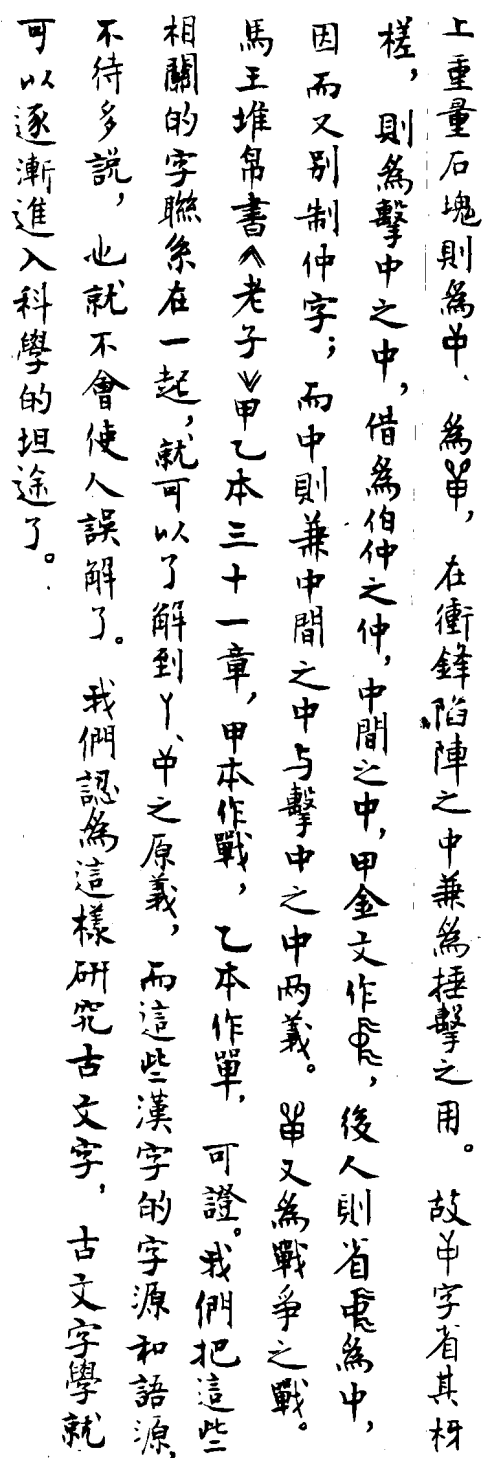 上重量石塊則為、為，在衝鋒陷陣之中兼為捶擊之用。故字省其枒
槎，則為擊中之中，借為伯仲之仲，中間之中，甲金文作，後人則省為中，
因而又别制仲字；而中則兼中間之中与擊中之中两義。又為戰爭之戰。
馬王堆帛書《老子》甲乙本三十一章，甲本作戰，乙本作單，可證。我們把這些
相關的字聯系在一起，就可以了解到丫、之原義，而這些漢字的字源和語源，
不待多説，也就不會使人誤解了。我們認為這樣研究古文字，古文字學就
可以逐漸進入科學的坦途了。